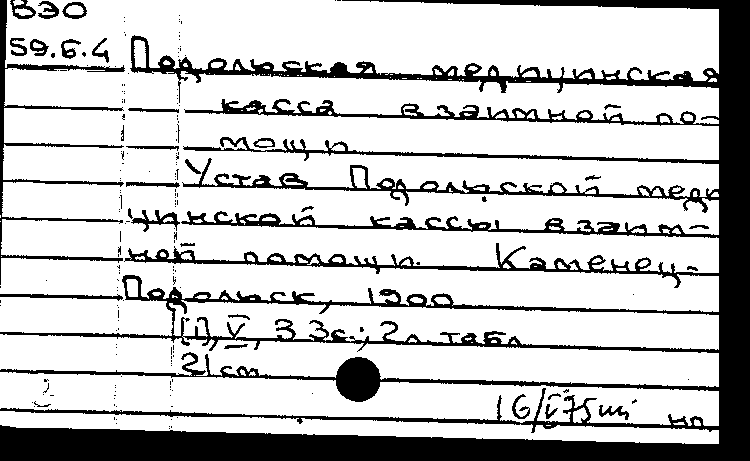 ВЭО
59.Б.4 Подольская медицинская
касса взаимной по-
мощи.
Устав Подольской меди
цинской кассы взаим-
ной помощи. Каменец-
Подольск, 1900
[1], V, 33с.; 2л. табл
21 cm
16/V 75 нп.